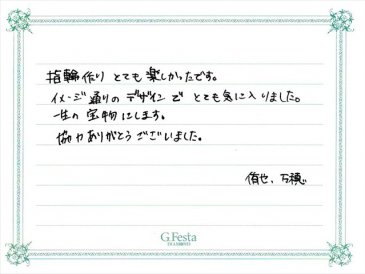 指輪作り とても楽しかったです。
イメージ通りの デザインで とても気に入りました。
一生の宝物にします。
協力ありがとうございました。
G.Festa